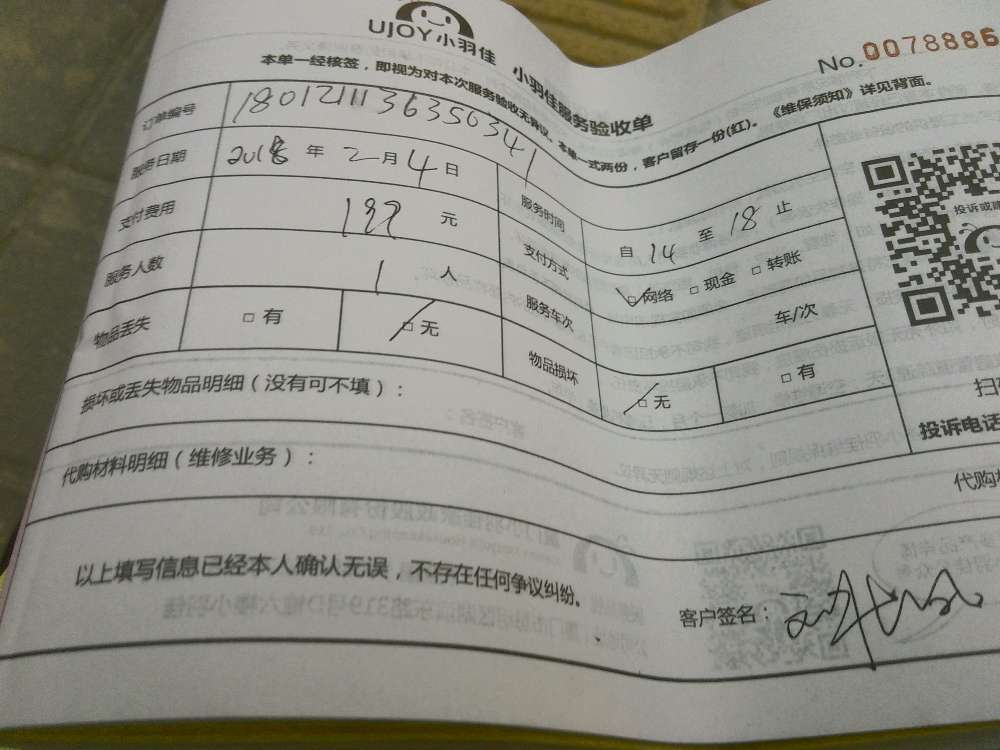 UJOY小羽佳
小羽佳服务验收单
No.0078886
本单一经核签，即视为对本次服务验收无异议。本单一式两份，客户留存一份(红)。《维保须知》详见背面。
订单编号 1801211136356341
服务日期 2018 年 2 月 4 日 服务时间 自 14 至 18 止
支付费用 197 元 支付方式 □网络 □现金 □转账
服务人数 1 人 服务车次 车/次
物品丢失 □有 □无 物品损坏 □无 □有
投诉或
扫
投诉电话
损坏或丢失物品明细（没有可不填）：
代购材料明细（维修业务）：
代购
以上填写信息已经本人确认无误，不存在任何争议纠纷。
客户签名：